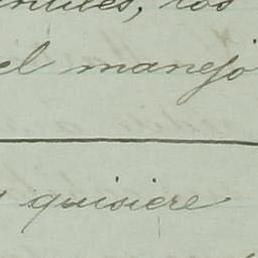 los
el manejo
quisiere